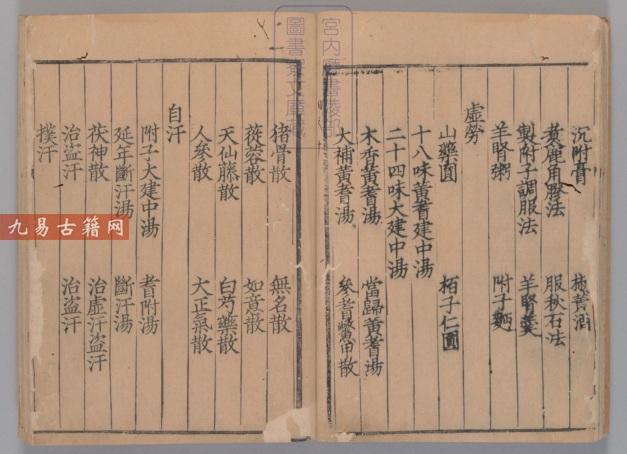 沉附膏 地黃酒
煑鹿角膠法 服秋石法
製附子調服法 羊腎羹
羊腎粥 附子麪
虛勞
山藥圓 栢子仁圓
十八味黃耆建中湯
二十四味大建中湯
木香黃耆湯 當歸黃耆湯
大補黃耆湯 參耆鱉甲散
猪骨散 無名散
蓯蓉散 如意散
天仙藤散 白芍藥散
人參散 大正氣散
自汗
附子大建中湯 耆附湯
延年斷汗湯 斷汗湯
茯神散 治虛汗盜汗
治盜汗 治盜汗
撲汗
宮内廳書陵部
圖書寮文庫
九易古籍网